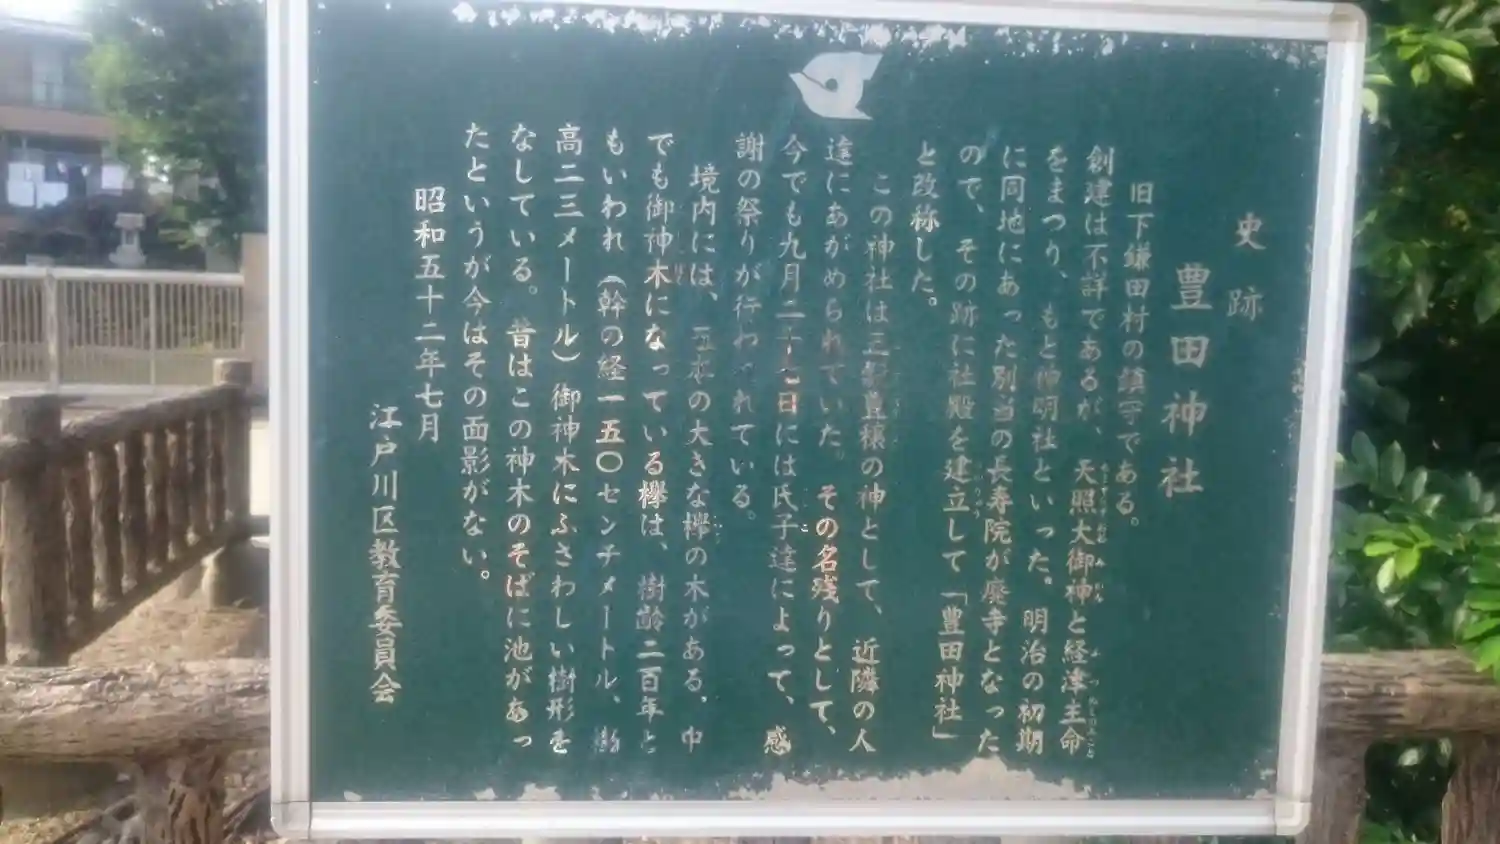 史跡
豊田神社
旧下鎌田村の鎮守である。
創建は不詳であるが、天照大御神と経津主命
をまつり、もと神明社といった。明治の初期
に同地にあった別当の長寿院が廃寺となった
ので、その跡に社殿を建立して「豊田神社」
と改称した。
この神社は五穀豊穣の神として、近隣の人
達にあがめられていた。その名残りとして、
今でも九月二十七日には氏子達によって、感
謝の祭りが行われている。
境内には、五本の大きな欅の木がある。中
でも御神木になっている欅は、樹齢二百年と
もいわれ（幹の経一五〇センチメートル、樹
高二三メートル）御神木にふさわしい樹形を
なしている。昔はこの神木のそばに池があっ
たというが今はその面影がない。
昭和五十二年七月
江戸川区教育委員会